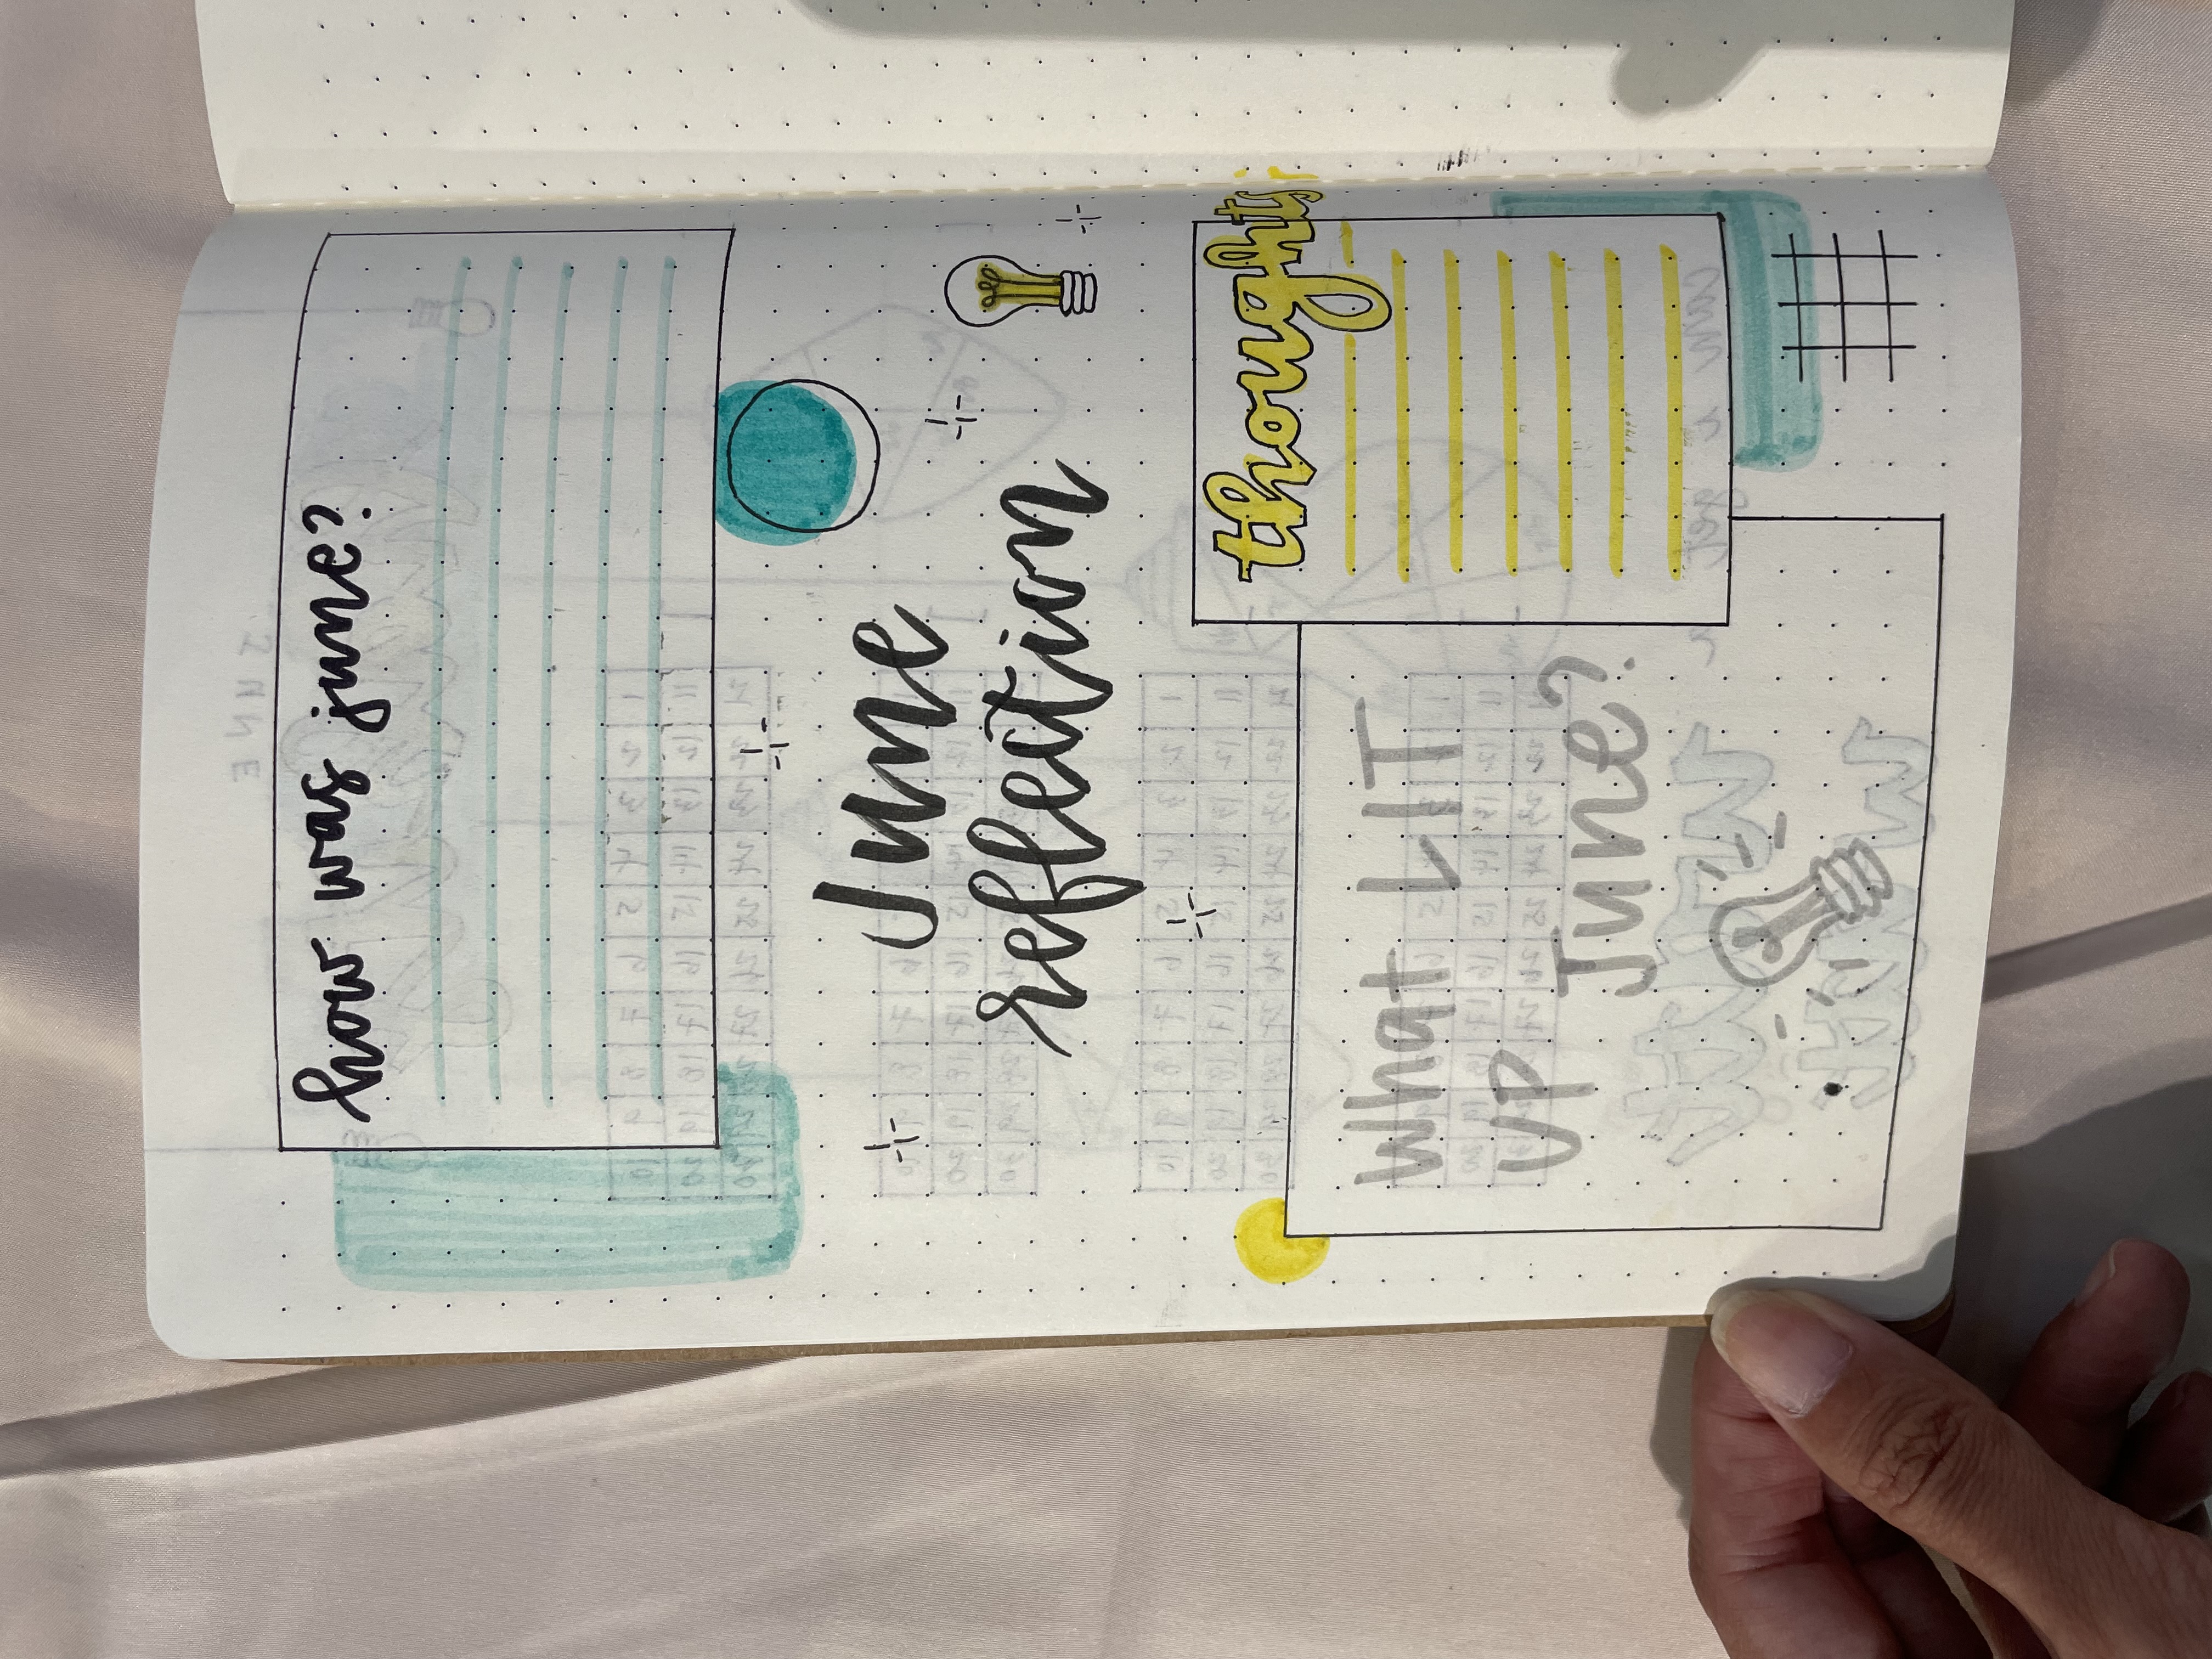 how was june?
June
reflection
thoughts
What LIT
up June?